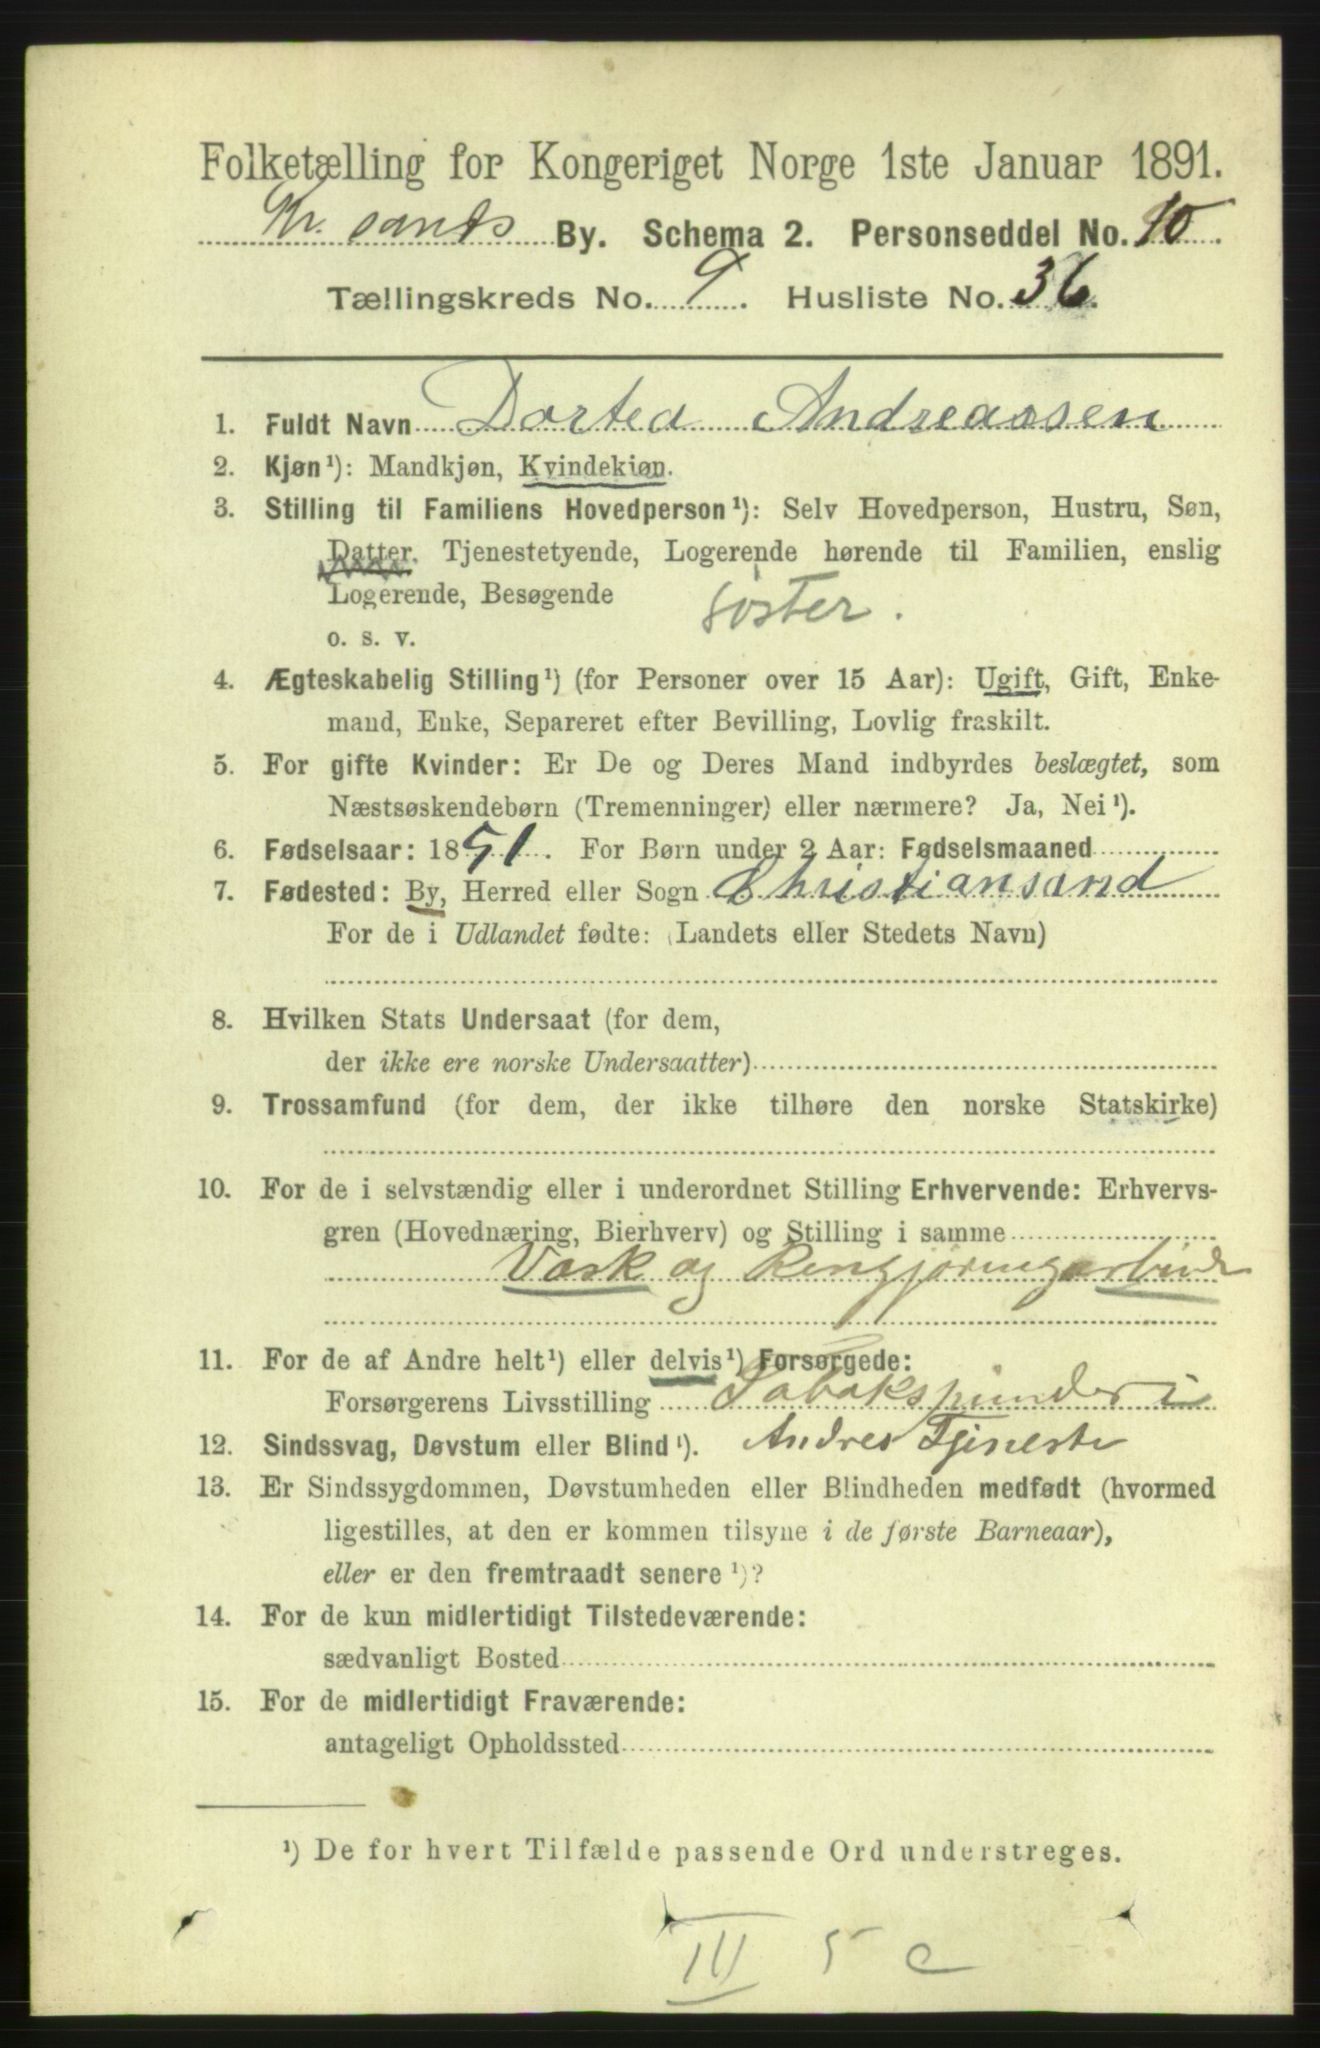 Folketælling for Kongeriget Norge 1ste Januar 1891.
Kr. sands By. Schema 2. Personseddel No. 10.
Tællingskreds No. 9. Husliste No. 36.
1. Fuldt Navn Dortea Andreassen
2. Kjøn¹): Mandkjøn, Kvindekjøn.
3. Stilling til Familiens Hovedperson¹): Selv Hovedperson, Hustru, Søn,
Datter, Tjenestetyende, Logerende hørende til Familien, enslig
Logerende, Besøgende søster.
o. s. v.
4. Ægteskabelig Stilling¹) (for Personer over 15 Aar): Ugift, Gift, Enke-
mand, Enke, Separeret efter Bevilling, Lovlig fraskilt.
5. For gifte Kvinder: Er De og Deres Mand indbyrdes beslægtet, som
Næstsøskendebørn (Tremenninger) eller nærmere? Ja, Nei¹).
6. Fødselsaar: 1851. For Børn under 2 Aar: Fødselsmaaned
7. Fødested: By, Herred eller Sogn Christiansand
For de i Udlandet fødte: (Landets eller Stedets Navn)
8. Hvilken Stats Undersaat (for dem,
der ikke ere norske Undersaatter)
9. Trossamfund (for dem, der ikke tilhøre den norske Statskirke)
10. For de i selvstændig eller i underordnet Stilling Erhvervende: Erhvervs-
gren (Hovednæring, Bierhverv) og Stilling i samme
Vask og Rengjøring
11. For de af Andre helt¹) eller delvis¹) Forsørgede:
Forsørgerens Livsstilling Tobakspinder i
12. Sindssvag, Døvstum eller Blind¹). Andres Tjeneste
13. Er Sindssygdommen, Døvstumheden eller Blindheden medfødt (hvormed
ligestilles, at den er kommen tilsyne i de første Barneaar),
eller er den fremtraadt senere¹)?
14. For de kun midlertidigt Tilstedeværende:
sædvanligt Bosted
15. For de midlertidigt Fraværende:
antageligt Opholdssted
¹) De for hvert Tilfælde passende Ord understreges.
III 5 c